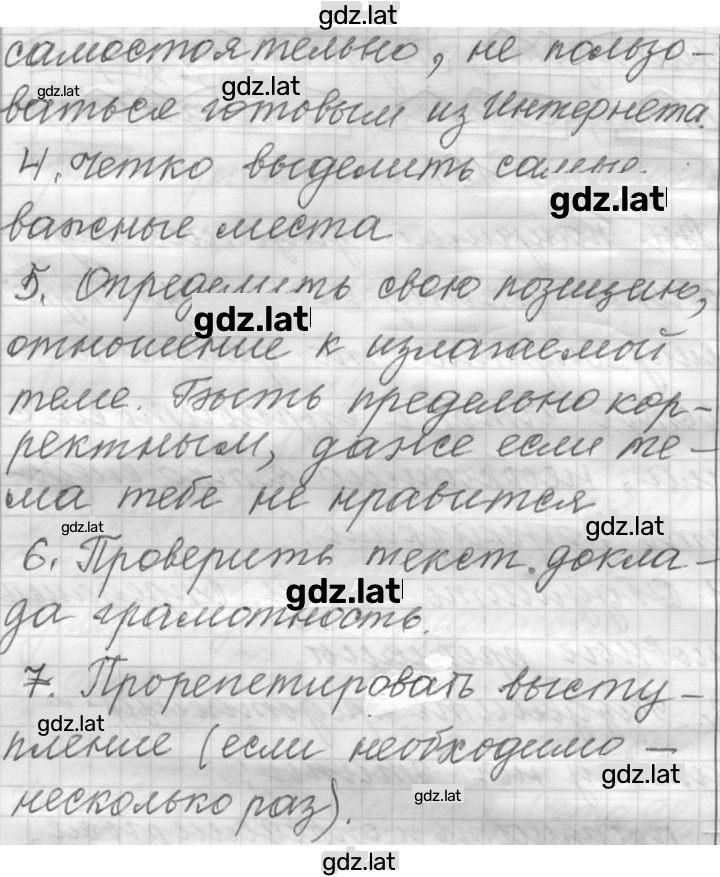 gdz.lat
самостоятельно, не пользо-
gdz.lat
gdz.lat
ваться готовым из Интернета.
4. Четко выделить самые
gdz.lat
важные места
5. Определить свою позицию,
gdz.lat
отношение к излагаемой
теме. Быть предельно кор-
ректным, даже если те-
ма тебе не нравится
gdz.lat
gdz.lat
6. Проверить текст докла-
gdz.lat
да грамотность.
7. Прорепетировать высту-
gdz.lat
пление (если необходимо -
gdz.lat
несколько раз).
gdz.lat
gdz.lat